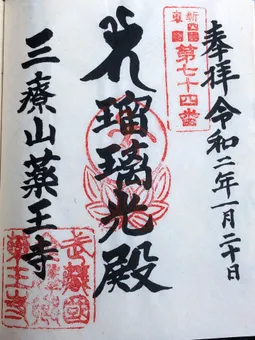 奉拝
令和二年一月二十日
新四国
東国
第七十四番
瑠璃光殿
三療山薬王寺
武蔵国
薬王寺